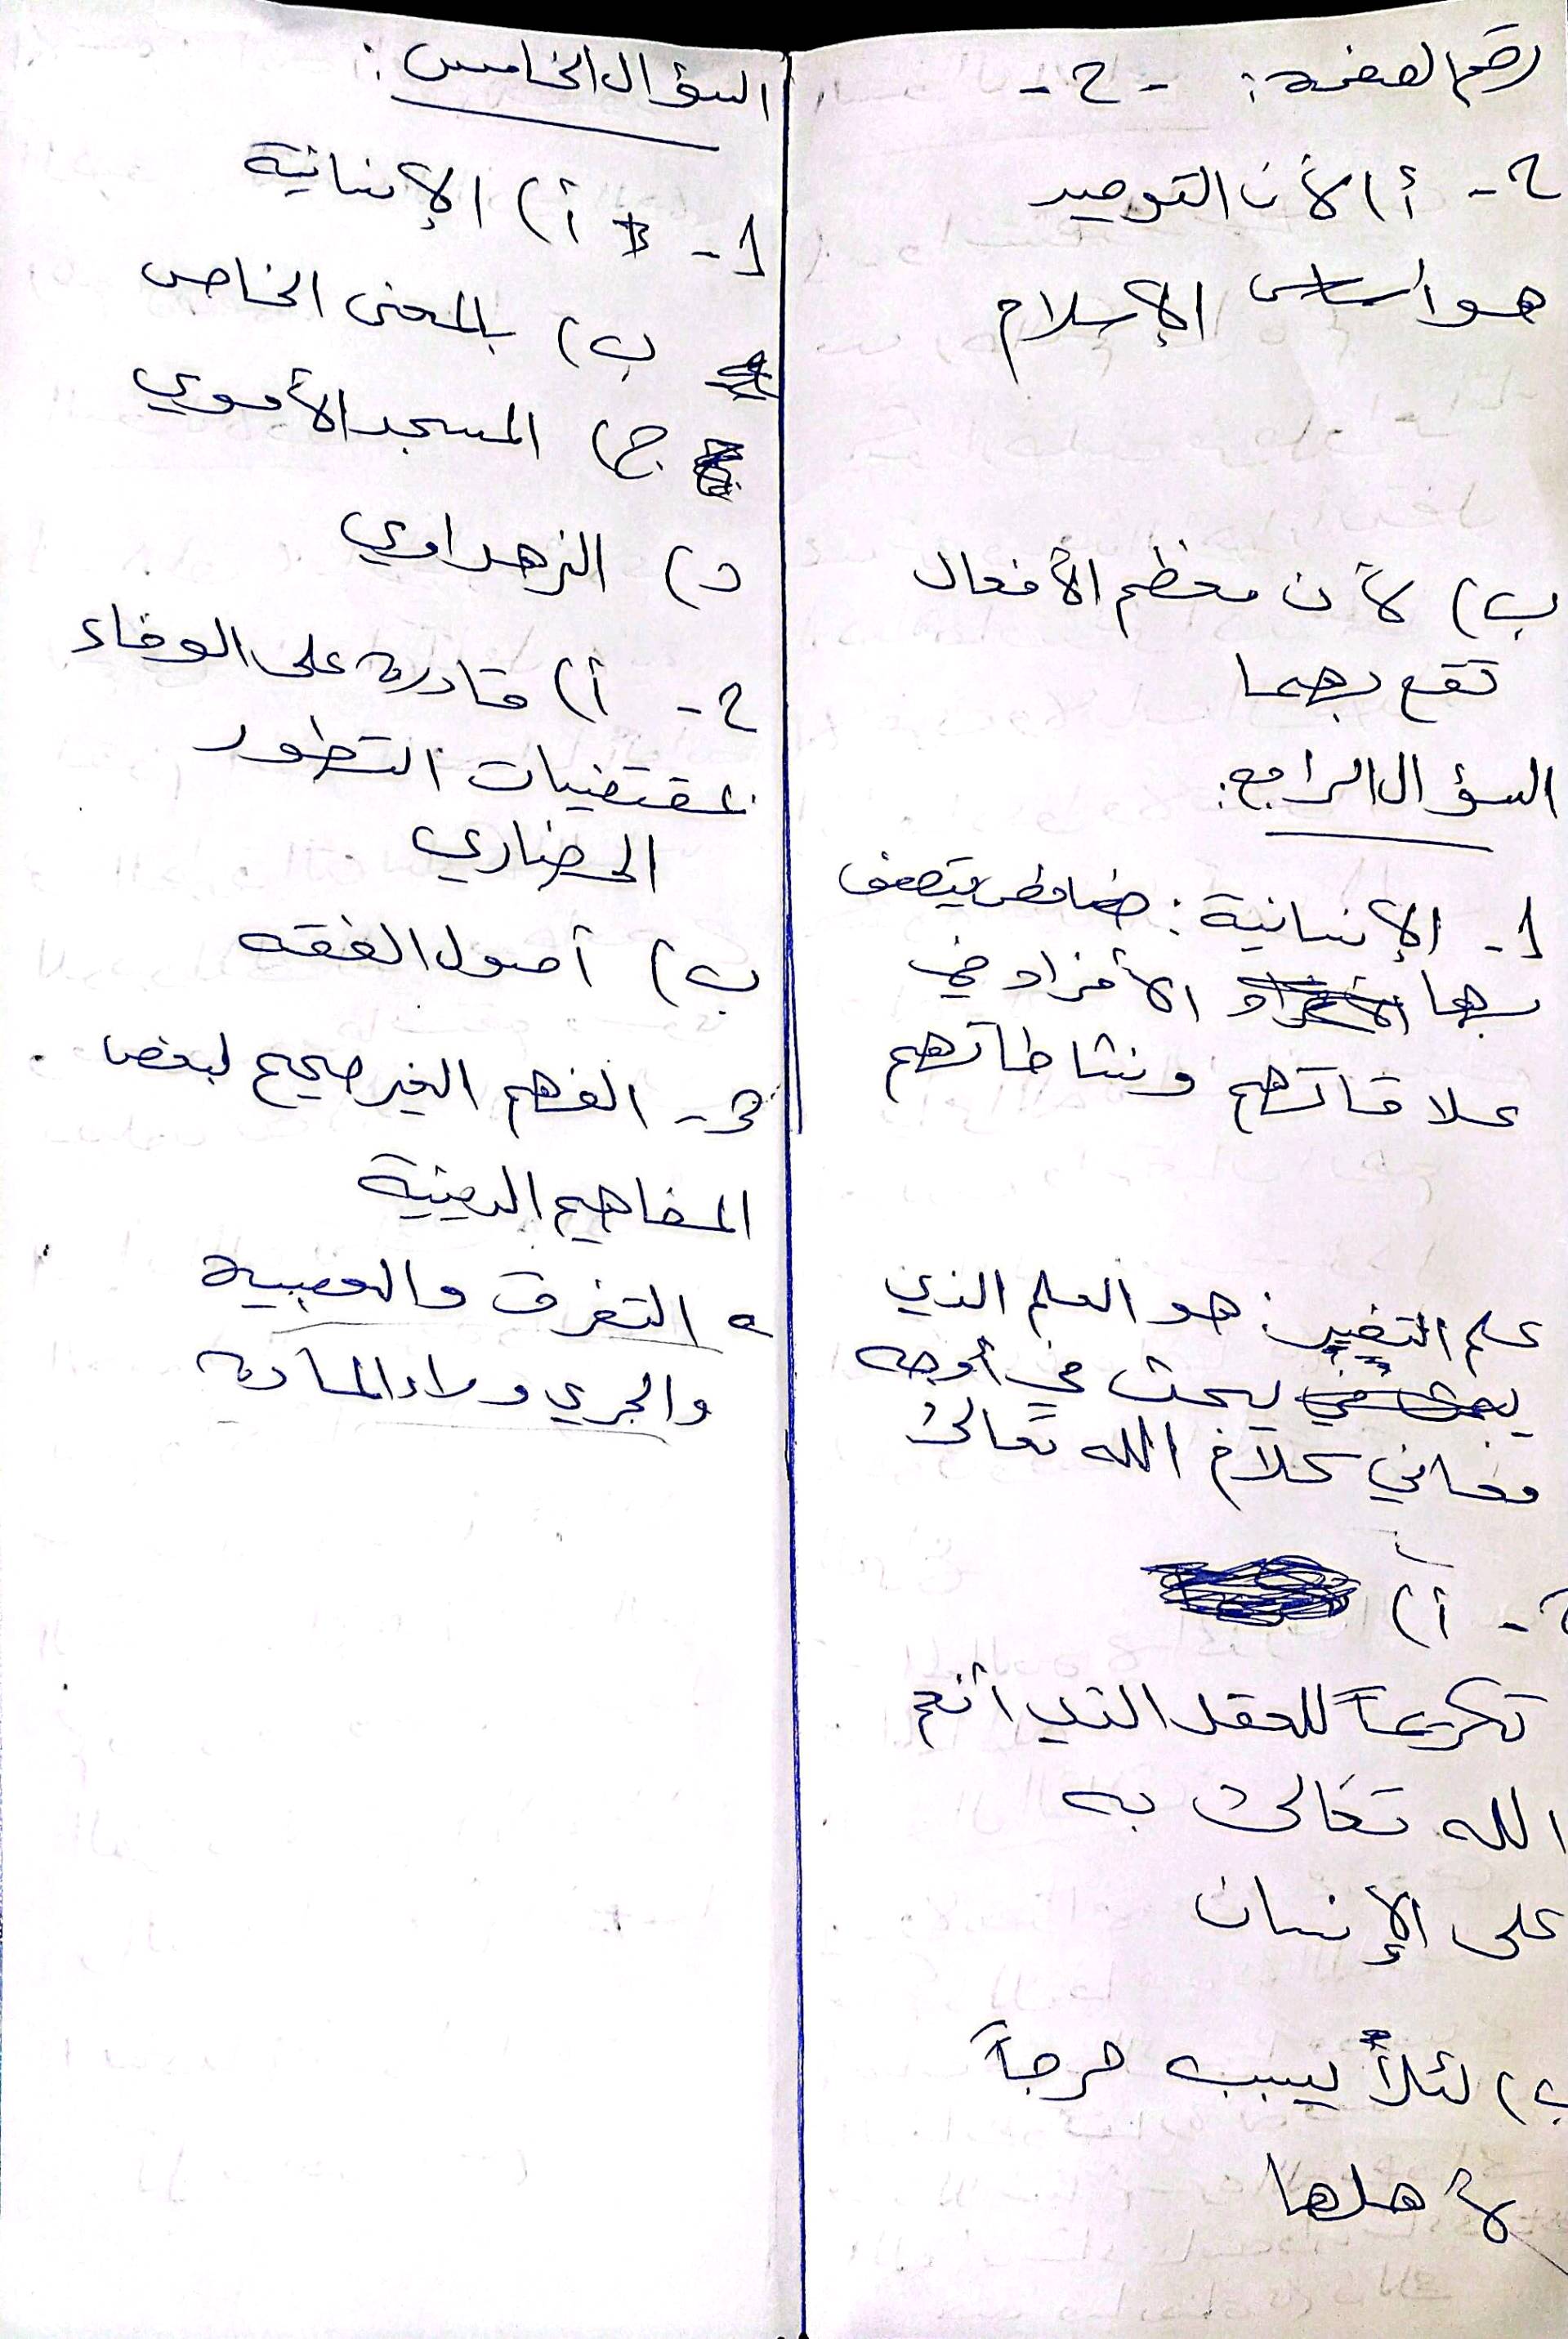 رقم الصفحة: - ٢ -
٢- أ) لأن التوحيد
هو أساس الإسلام
ب) لأن معظم الأفعال
تقع بهما
السؤال الرابع:
1- الإنسانية: خصائص يتصف
بها الأفراد في
علاقاتهم ونشاطاتهم
علم التفسير: هو العلم الذي
يبحث في أوجه
معاني كلام الله تعالى
٢- أ)
تكريماً للعقل الذي أنعم
الله تعالى به
على الإنسان
ب) لئلا يسبب حرجاً
لأهلها
السؤال الخامس:
1- أ) الإنسانية
ب) بالمعنى الخاص
ج) المسجد الأموي
د) الزهراوي
٢- أ) قادرة على الوفاء
بمقتضيات التطور
الحضاري
ب) أصول الفقه
3- الفهم الغير صحيح لبعض
المفاهيم الدينية
التفرق والعصبية
والجري وراء المادة